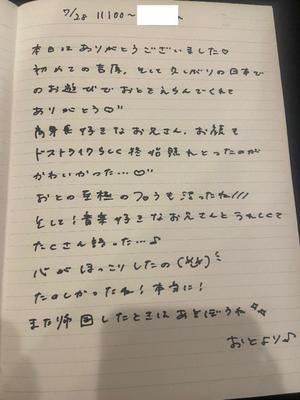 7/28 11:00~
本日はありがとうございました♡
初めての吉原、そして久しぶりの日本で
のお遊びでおとをえらんでくれて
ありがとう♡"
高身長好きなお兄さん、お顔も
ドストライクらしく終始照れとったのが
かわいかった…♡"
おとの至極のフロうも沼ったね///
そして!音楽好きなお兄さんとうれしくて
たくさん語った…♪
心がほっこりしたの
たのしかったね!本当に!
また帰国したときはあそぼうね
おとより♪